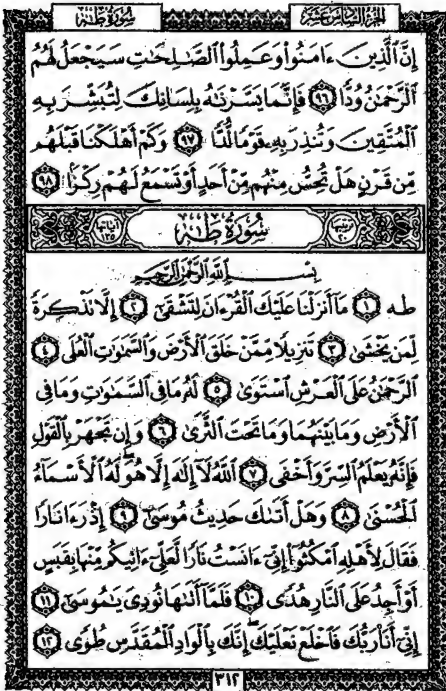 سُورَةُ طه الجُزْءُ السَّادِسَ عَشَرَ
إِنَّ ٱلَّذِينَ ءَامَنُوا۟ وَعَمِلُوا۟ ٱلصَّـٰلِحَـٰتِ سَيَجْعَلُ لَهُمُ
ٱلرَّحْمَـٰنُ وُدًّا ٩٦ فَإِنَّمَا يَسَّرْنَـٰهُ بِلِسَانِكَ لِتُبَشِّرَ بِهِ
ٱلْمُتَّقِينَ وَتُنذِرَ بِهِۦ قَوْمًا لُّدًّا ٩٧ وَكَمْ أَهْلَكْنَا قَبْلَهُم
مِّن قَرْنٍ هَلْ تُحِسُّ مِنْهُم مِّنْ أَحَدٍ أَوْ تَسْمَعُ لَهُمْ رِكْزًۢا ٩٨
ترتيبها ٢٠ سُورَةُ طه آياتها ١٣٥
بِسْمِ ٱللَّهِ ٱلرَّحْمَـٰنِ ٱلرَّحِيمِ
طه ١ مَآ أَنزَلْنَا عَلَيْكَ ٱلْقُرْءَانَ لِتَشْقَىٰٓ ٢ إِلَّا تَذْكِرَةً
لِّمَن يَخْشَىٰ ٣ تَنزِيلًا مِّمَّنْ خَلَقَ ٱلْأَرْضَ وَٱلسَّمَـٰوَٰتِ ٱلْعُلَى ٤
ٱلرَّحْمَـٰنُ عَلَى ٱلْعَرْشِ ٱسْتَوَىٰ ٥ لَهُۥ مَا فِى ٱلسَّمَـٰوَٰتِ وَمَا فِى
ٱلْأَرْضِ وَمَا بَيْنَهُمَا وَمَا تَحْتَ ٱلثَّرَىٰ ٦ وَإِن تَجْهَرْ بِٱلْقَوْلِ
فَإِنَّهُۥ يَعْلَمُ ٱلسِّرَّ وَأَخْفَى ٧ ٱللَّهُ لَآ إِلَـٰهَ إِلَّا هُوَ لَهُ ٱلْأَسْمَآءُ
ٱلْحُسْنَىٰ ٨ وَهَلْ أَتَىٰكَ حَدِيثُ مُوسَىٰٓ ٩ إِذْ رَءَا نَارًا
فَقَالَ لِأَهْلِهِ ٱمْكُثُوٓا۟ إِنِّىٓ ءَانَسْتُ نَارًا لَّعَلِّىٓ ءَاتِيكُم مِّنْهَا بِقَبَسٍ
أَوْ أَجِدُ عَلَى ٱلنَّارِ هُدًى ١٠ فَلَمَّآ أَتَىٰهَا نُودِىَ يَـٰمُوسَىٰٓ ١١
إِنِّىٓ أَنَا۠ رَبُّكَ فَٱخْلَعْ نَعْلَيْكَ إِنَّكَ بِٱلْوَادِ ٱلْمُقَدَّسِ طُوًى ١٢
٣١٢